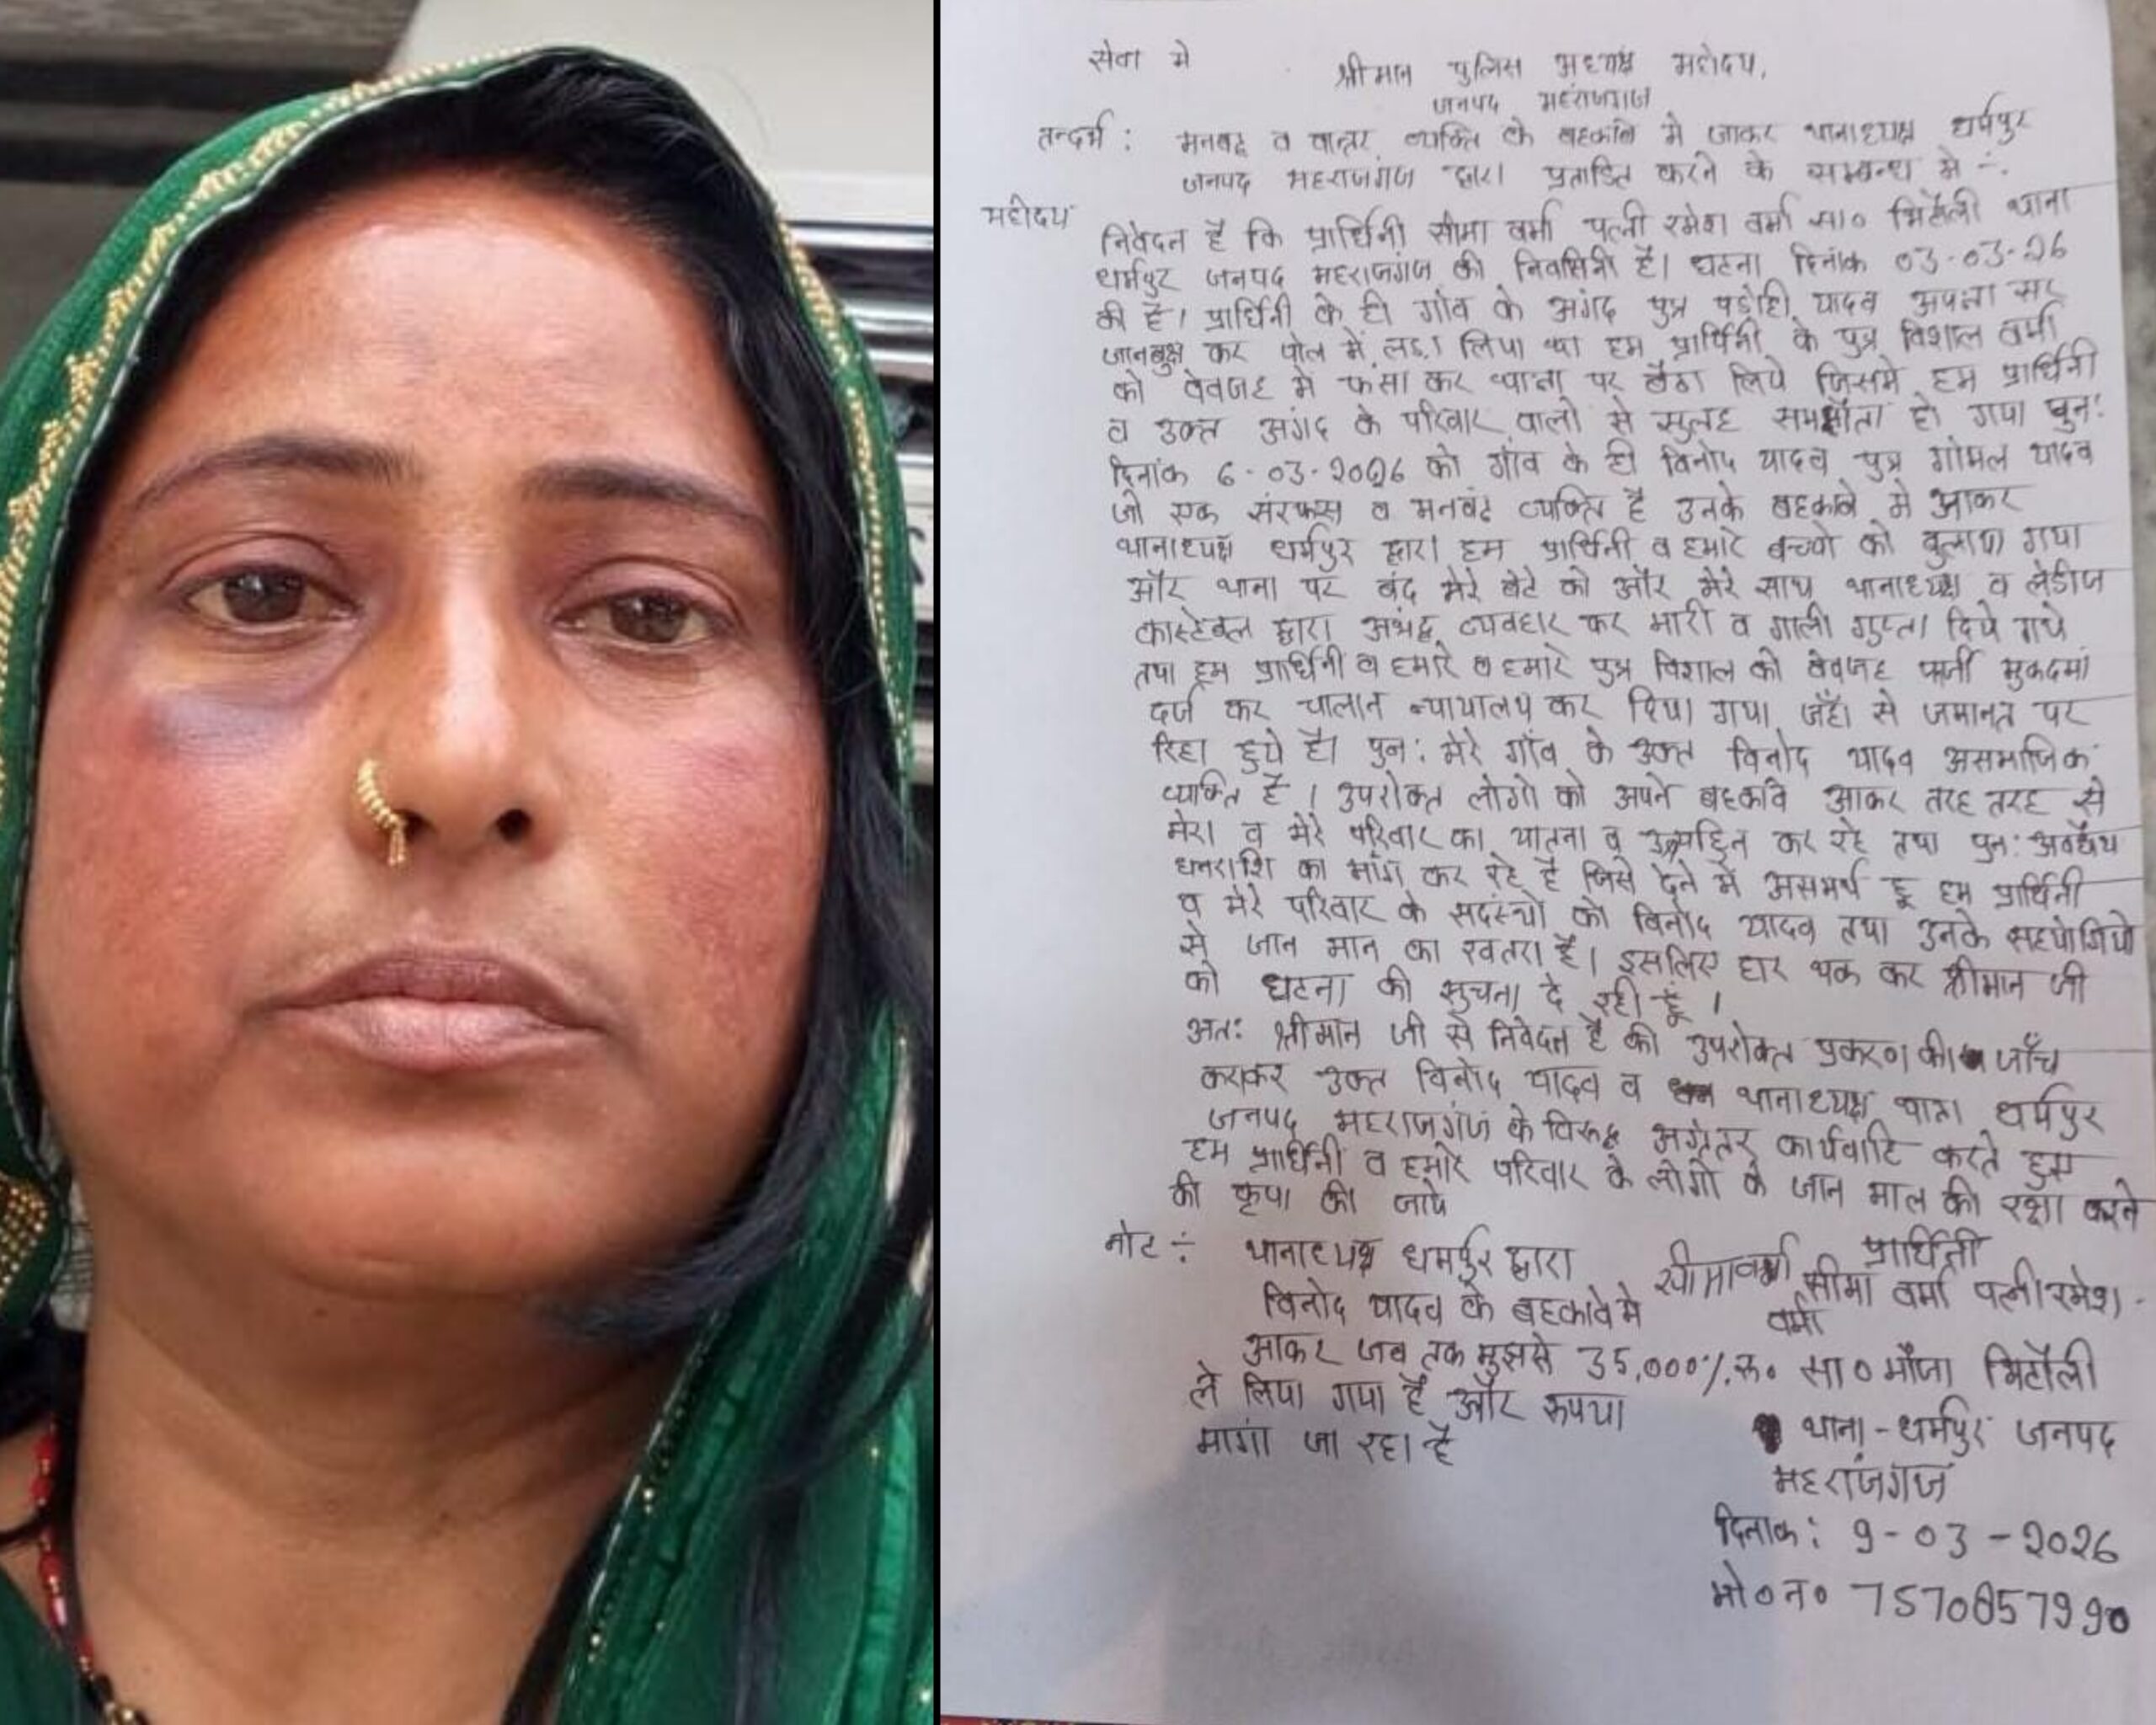 सेवा मे
श्रीमान पुलिस अध्यक्ष महोदय,
जनपद महंराजगंज
सन्दर्भ : मनबढ़ व व्यक्ति के बहकावे मे जाकर थानाध्यक्ष धर्मपुर
जनपद महराजगंज द्वारा प्रताडित करने के सम्बन्ध मे ∸.
महोदय
निवेदन है कि प्रार्थिनी सीमा वर्मा पत्नी रमेश वर्मा सा० भिटौली थाना
धर्मपुर जनपद महराजगंज की निवासिनी है। घटना दिनांक 03-03-26
की है। प्रार्थिनी के ही गाँव के अंगद पुत्र यादव अपना सर
जानबुझ कर पोल में लड़ा लिया था हम प्रार्थिनी के पुत्र विशाल वर्मा
को वेवजह मे फंसा कर थाना पर बैठा लिये जिसमे हम प्रार्थिनी
व उक्त अंगद के परिवार वालो से सुलह समझौता हो गया पुन:
दिनांक 6-03-2026 को गाँव के ही विनोद यादव पुत्र गोमल यादव
जो एक व मनबढ व्यक्ति है उनके बहकावे मे आकर
थानाध्यक्ष धर्मपुर द्वारा हम प्रार्थिनी व हमारे बच्चो को बुलाया गया
और थाना पर बंद मेरे बेटे को और मेरे साथ थानाध्यक्ष व लेडीज
कास्टेबल द्वारा अभद्र व्यवहार कर मारी व गाली गुप्ता दिये गये
तथा हम प्रार्थिनी व हमारे व हमारे पुत्र विशाल को वेवजह फर्जी मुकदमां
दर्ज कर चालान न्यायालय कर दिया गया जहाँ से जमानत पर
रिहा हुये है। पुन: मेरे गाँव के उक्त विनोद यादव असमाजिक
व्यक्ति है । उपरोक्त लोगो को अपने बहकावे आकर तरह तरह से
मेरा व मेरे परिवार का यातना व कर रहे तथा पुन: अवैध
धनराशि का मांग कर रहे है जिसे देने मे असमर्थ हू हम प्रार्थिनी
व मेरे परिवार के सदस्यो को विनोद यादव तथा उनके सहयोगियो
से जान मान का खतरा है। इसलिए हार थक कर श्रीमान जी
को घटना की सुचना दे रही हूँ ।
अत: श्रीमान जी से निवेदन है की उपरोक्त प्रकरण की जाँच
कराकर उक्त विनोद यादव व थानाध्यक्ष थाना धर्मपुर
जनपद महराजगंज के विरूद्ध अग्रेतर कार्यवाटि करते हुए
हम प्रार्थिनी व हमारे परिवार के लोगो के जान माल की रक्षा करने
की कृपा की जाये
नोट ∸ थानाध्यक्ष धर्मपुर द्वारा
विनोद यादव के बहकावे मे
आकर जब तक मुझसे 35,000/.रू०
ले लिया गया है और रूपया
मागां जा रहा है
प्रार्थिनी
सीमावर्मा सीमा वर्मा पत्नी रमेश
वर्मा
सा० मौजा भिटौली
थाना-धर्मपुर जनपद
महराजंगंज
दिनाक: 9-03-2026
मो०न० 7570857990